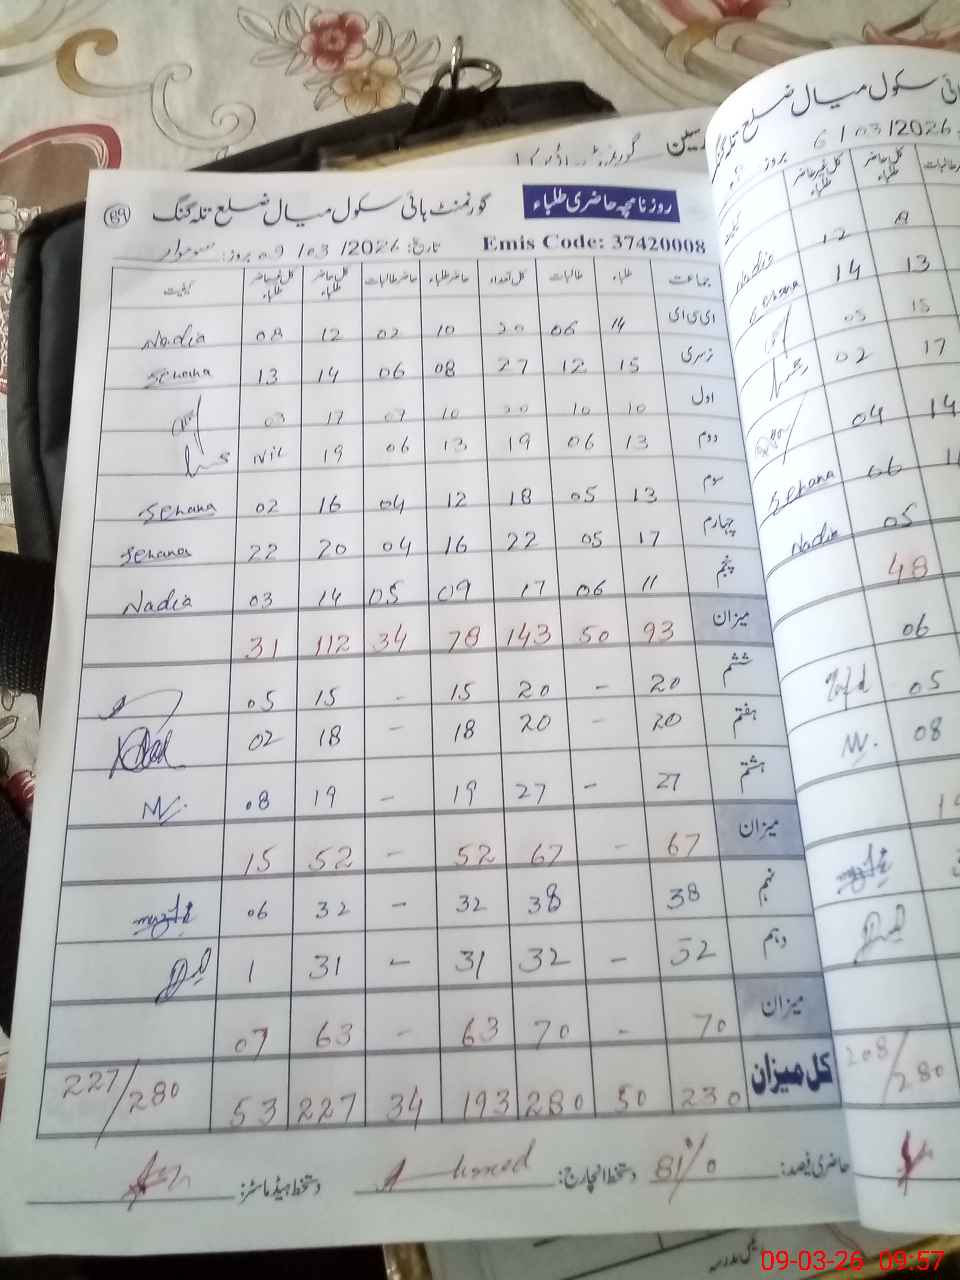 روزنامچہ حاضری طلباء
گورنمنٹ ہائی سکول میال ضلع تلہ گنگ
189
Emis Code: 37420008
تاریخ: 09/03/2026 بروز: سوموار
جماعت طلباء طالبات کل تعداد حاضر طلباء حاضر طالبات کل حاضر طلباء کل غیر حاضر طلباء کیفیت
ای سی ای 14 06 20 10 02 12 08 Nadia
نرسری 15 12 27 08 06 14 13 Sehana
اول 10 10 20 10 07 17 03
دوم 13 06 19 13 06 19 Nil
سوم 13 05 18 12 04 16 02 Sehana
چہارم 17 05 22 16 04 20 22 Sehana
پنجم 11 06 17 09 05 14 03 Nadia
میزان 93 50 143 78 34 112 31
ششم 20 - 20 15 - 15 05
ہفتم 20 - 20 18 - 18 02
ہشتم 27 - 27 19 - 19 08
میزان 67 - 67 52 - 52 15
نہم 38 38 32 - 32 06
دہم 32 - 32 31 - 31 1
میزان 70 - 70 63 - 63 07
کل میزان 230 50 280 193 34 227 53 227/280
حاضری فیصد: 81% دستخط انچارج: دستخط ہیڈ ماسٹر:
ہائی سکول میال ضلع تلہ گنگ
بروز 6/03/2026
کل حاضر طلباء کل غیر حاضر طلباء
8 12 Nadia
13 14 Sehana
15 05
17 02
14 04
06 Sehana
05 Nadia
48
06
05
08
208/280
09-03-26 09:57